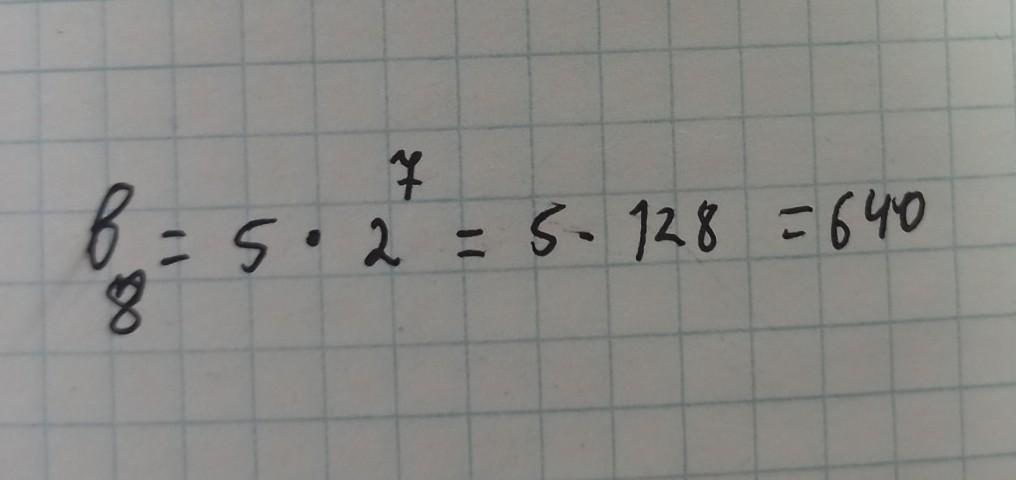 b₈ = 5 · 2⁷ = 5 · 128 = 640